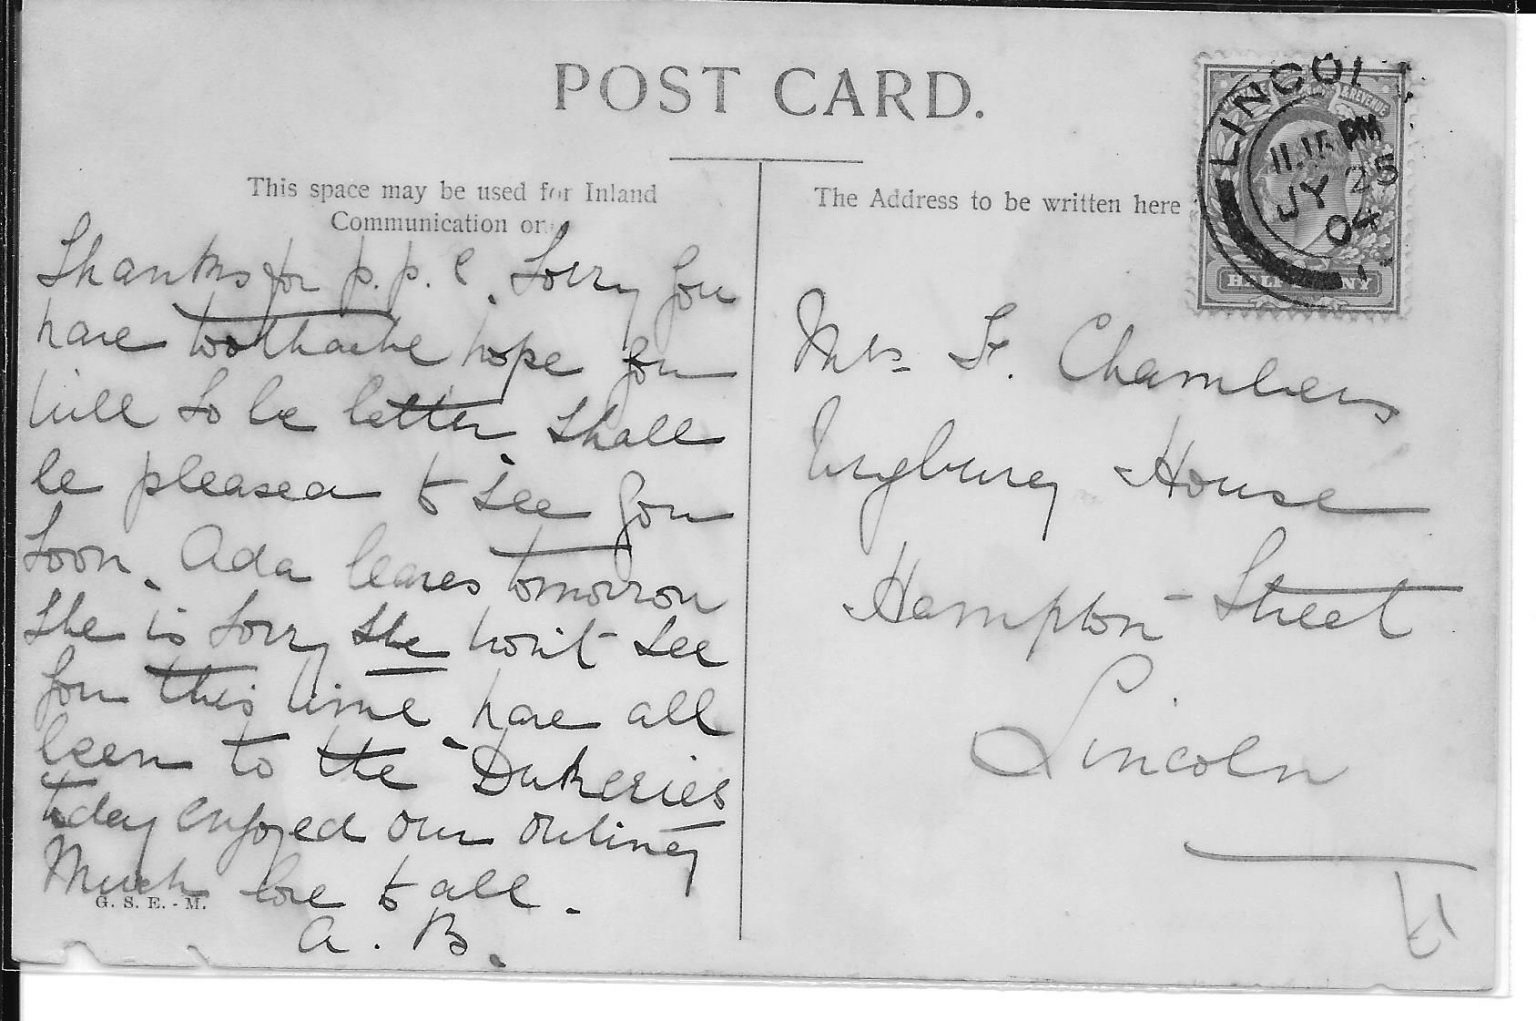 POST CARD.
This space may be used for Inland
Communication or
The Address to be written here
LINCOL
11.15 PM
JY 25
04
REVENUE
HALFPENNY
Thanks for p.p.c. Sorry you
have toothache hope you
will so be better. Shall
be pleased to see you
soon. Ada leaves tomorrow
She is sorry she won't see
you this time have all
been to the "Dukeries
today enjoyed our outing
Much love to all.
A. B.
G. S. E. - M.
Mrs F. Chambers
House
Hampton Street
Lincoln